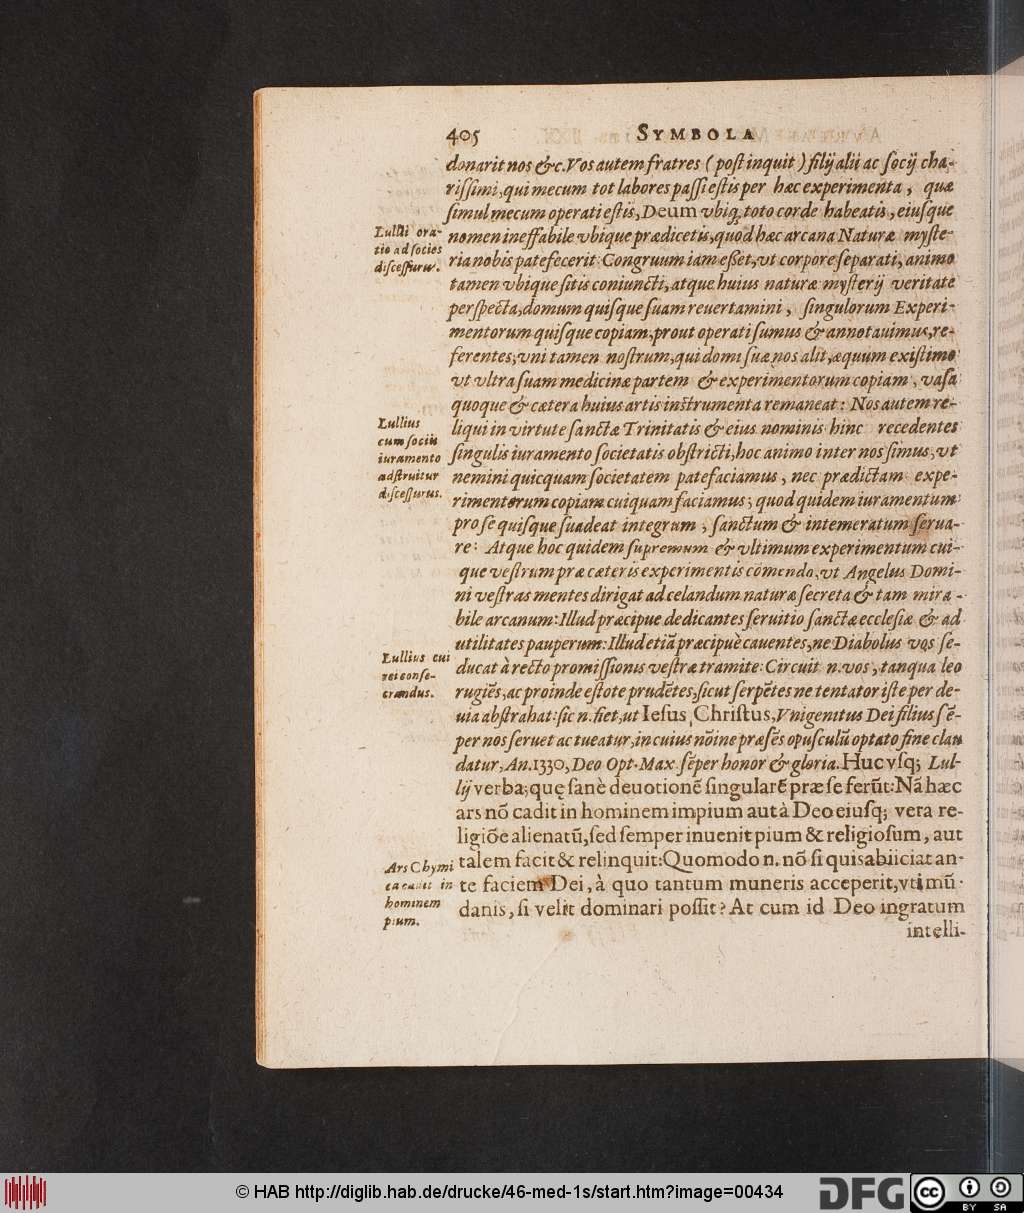 405 SYMBOLA
donarit nos &c. Vos autem fratres ( post inquit ) filij alii ac socij cha-
rissimi, qui mecum tot labores passi estis per hæc experimenta, quæ
simul mecum operati estis, Deum vbiq; toto corde habeatis, eiusque
nomen ineffabile vbique prædicetis, quod hæc arcana Naturæ myste-
ria nobis patefecerit: Congruum iam esset, vt corpore separati, animo
tamen vbique sitis coniuncti, atque huius naturæ mysterij veritate
perspecta, domum quisque suam reuertamini, singulorum Experi-
mentorum quisque copiam, prout operati sumus & annotauimus, re-
ferentes, vni tamen nostrum, qui domi suæ nos alit, æquum existimo
vt vltra suam medicinæ partem & experimentorum copiam, vasa
quoque & cætera huius artis instrumenta remaneat: Nos autem re-
liqui in virtute sanctæ Trinitatis & eius nominis hinc recedentes
singulis iuramento societatis obstricti, hoc animo inter nos simus, vt
nemini quicquam societatem patefaciamus, nec prædictam expe-
rimentorum copiam cuiquam faciamus; quod quidem iuramentum
pro se quisque suadeat integrum, sanctum & intemeratum serua-
re: Atque hoc quidem supremum & vltimum experimentum cui-
que vestrum præ cæteris experimentis comendo, vt Angelus Domi-
ni vestras mentes dirigat ad celandum naturæ secreta & tam mira-
bile arcanum: Illud præcipue dedicantes seruitio sanctæ ecclesiæ & ad
utilitates pauperum: Illud etiā præcipuè cauentes, ne Diabolus vos se-
ducat à recto promissionis vestræ tramite: Circuit n. vos, tanqua leo
rugiēs, ac proinde estote prudētes, sicut serpētes ne tentator iste per de-
uia abstrahat: sic n. fiet, ut Iesus Christus, Vnigenitus Dei filius sē-
per nos seruet ac tueatur, in cuius nōine præsēs opusculū optato fine clau
datur, An. 1330, Deo Opt. Max sēper honor & gloria. Huc vsq; Lul-
lij verba; quę sanè deuotionē singularē præ se ferūt: Nā hæc
ars nō cadit in hominem impium aut à Deo eiusq; vera re-
ligiōe alienatū, sed semper inuenit pium & religiosum, aut
talem facit & relinquit: Quomodo n. nō si quis abiiciat an-
te faciem Dei, à quo tantum muneris acceperit, vti mū-
danis, si velit dominari possit? At cum id Deo ingratum
intelli-
Lullii ora-
tio ad socios
discessurus.
Lullius
cum sociis
iuramento
adstruitur
discessurus.
Lullius cui
rei conse-
crandus.
Ars Chymi
ca cadit in
hominem
pium.
© HAB http://diglib.hab.de/drucke/46-med-1s/start.htm?image=00434
DFG
cc
BY SA